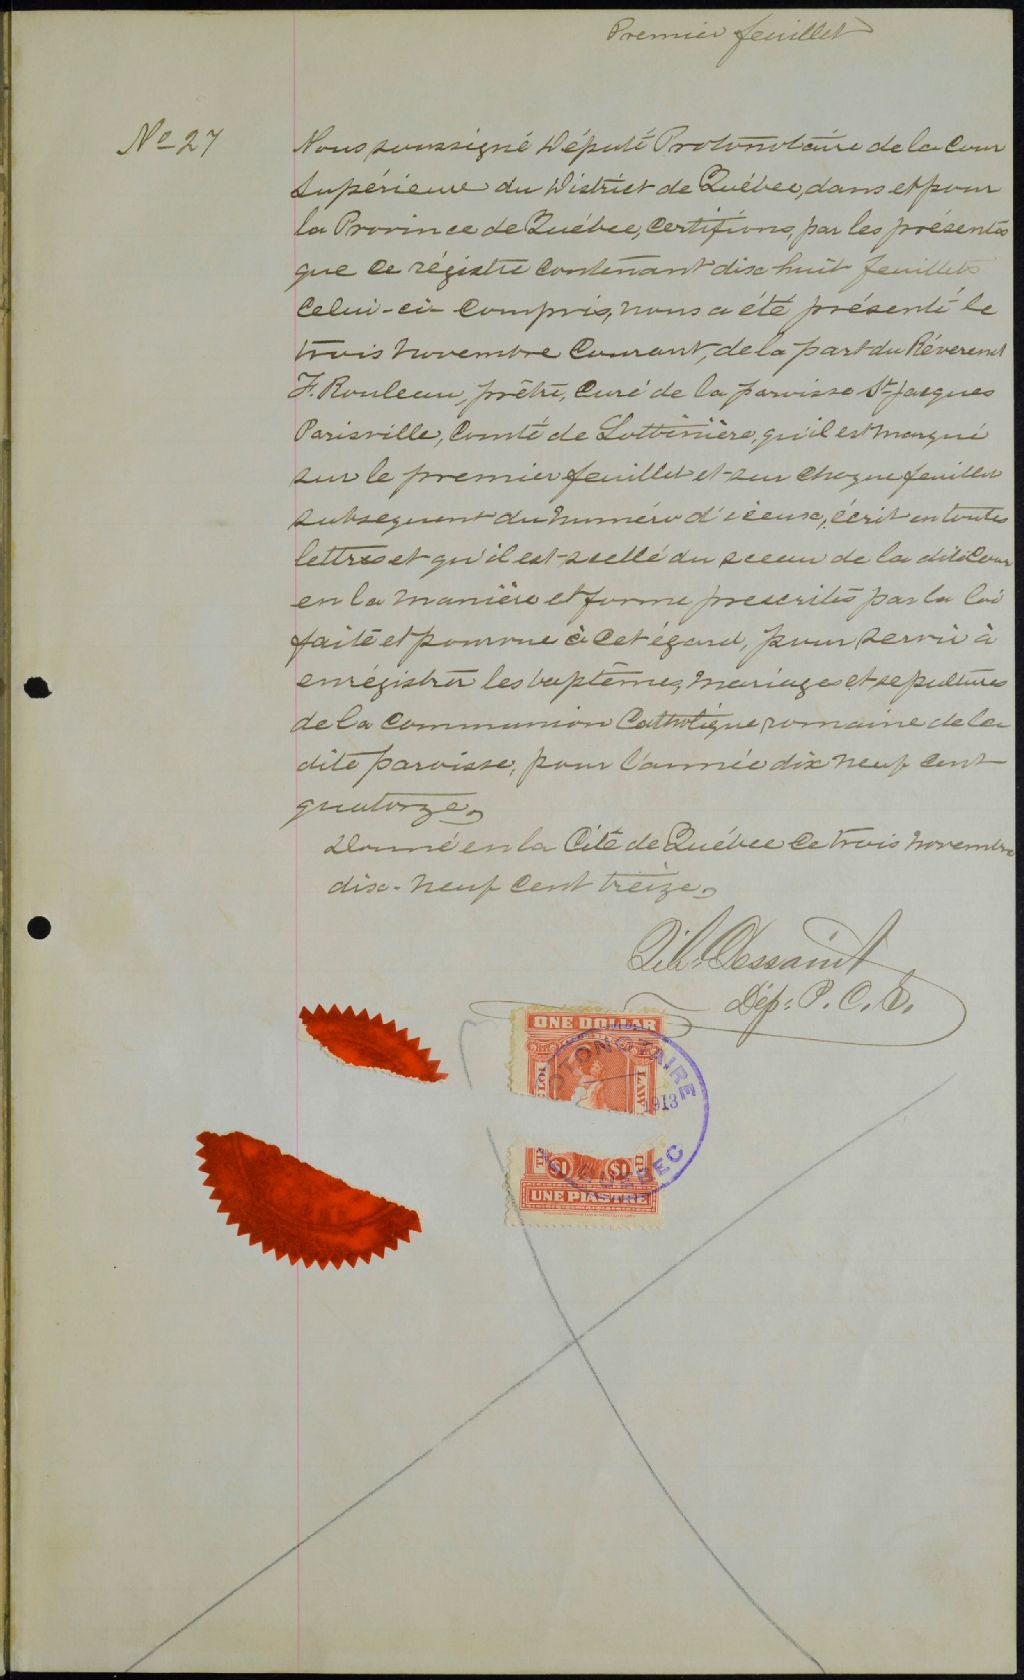 Premier feuillet
No 27
Nous, soussigné Député Protonotaire de la Cour
Supérieure du District de Québec, dans et pour
la Province de Québec, certifions, par les présentes
que ce régistre contenant dix huit feuillets
celui-ci compris, nous a été présenté le
trois novembre courant, de la part du Réverend
F. Rouleau, prêtre, curé de la paroisse St-Jacques
Parisville, Comté de Lotbinière, qu'il est marqué
sur le premier feuillet et sur chaque feuillet
subsequent du numéro d'iceux, écrit en toutes
lettres et qu'il est scellé du sceau de la dite Cour
en la manière et forme prescrites par la loi
faite et pourvue à cet égard, pour servir à
enrégistrer les baptêmes, mariages et sepultures
de la communion Catholique romaine de la
dite paroisse, pour l'année dix neuf cent
quatorze,
Donné en la Cité de Québec ce trois novembre
dix-neuf cent treize,
Dessaint
Dép: P. C. S.
ONE DOLLAR
OTONOTAIRE
LOI
LAW
1913
$1 $1
QUEBEC
UNE PIASTRE